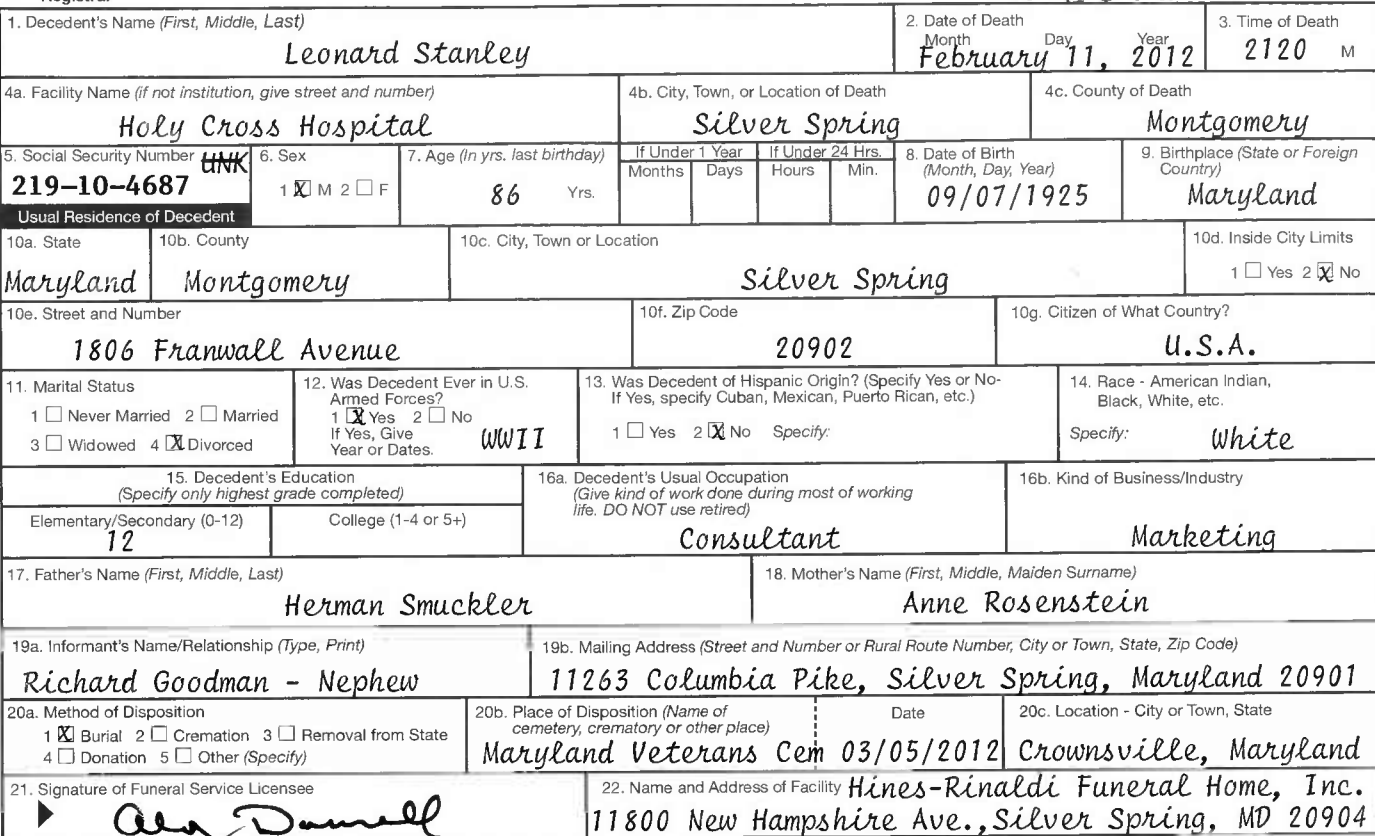 1. Decedent's Name (First, Middle, Last)
Leonard Stanley
2. Date of Death
Month Day Year
February 11, 2012
3. Time of Death
2120 M
4a. Facility Name (if not institution, give street and number)
Holy Cross Hospital
4b. City, Town, or Location of Death
Silver Spring
4c. County of Death
Montgomery
5. Social Security Number UNK
219-10-4687
6. Sex
1 X M 2 ☐ F
7. Age (In yrs. last birthday)
86 Yrs.
If Under 1 Year
Months Days
If Under 24 Hrs.
Hours Min.
8. Date of Birth
(Month, Day, Year)
09/07/1925
9. Birthplace (State or Foreign
Country)
Maryland
Usual Residence of Decedent
10a. State
Maryland
10b. County
Montgomery
10c. City, Town or Location
Silver Spring
10d. Inside City Limits
1 ☐ Yes 2 X No
10e. Street and Number
1806 Franwall Avenue
10f. Zip Code
20902
10g. Citizen of What Country?
U.S.A.
11. Marital Status
1 ☐ Never Married 2 ☐ Married
3 ☐ Widowed 4 X Divorced
12. Was Decedent Ever in U.S.
Armed Forces?
1 X Yes 2 ☐ No
If Yes, Give
Year or Dates. WWII
13. Was Decedent of Hispanic Origin? (Specify Yes or No-
If Yes, specify Cuban, Mexican, Puerto Rican, etc.)
1 ☐ Yes 2 X No Specify:
14. Race - American Indian,
Black, White, etc.
Specify: White
15. Decedent's Education
(Specify only highest grade completed)
Elementary/Secondary (0-12)
12
College (1-4 or 5+)
16a. Decedent's Usual Occupation
(Give kind of work done during most of working
life. DO NOT use retired)
Consultant
16b. Kind of Business/Industry
Marketing
17. Father's Name (First, Middle, Last)
Herman Smuckler
18. Mother's Name (First, Middle, Maiden Surname)
Anne Rosenstein
19a. Informant's Name/Relationship (Type, Print)
Richard Goodman - Nephew
19b. Mailing Address (Street and Number or Rural Route Number, City or Town, State, Zip Code)
11263 Columbia Pike, Silver Spring, Maryland 20901
20a. Method of Disposition
1 X Burial 2 ☐ Cremation 3 ☐ Removal from State
4 ☐ Donation 5 ☐ Other (Specify)
20b. Place of Disposition (Name of
cemetery, crematory or other place)
Maryland Veterans Cem
Date
03/05/2012
20c. Location - City or Town, State
Crownsville, Maryland
21. Signature of Funeral Service Licensee
22. Name and Address of Facility Hines-Rinaldi Funeral Home, Inc.
11800 New Hampshire Ave., Silver Spring, MD 20904